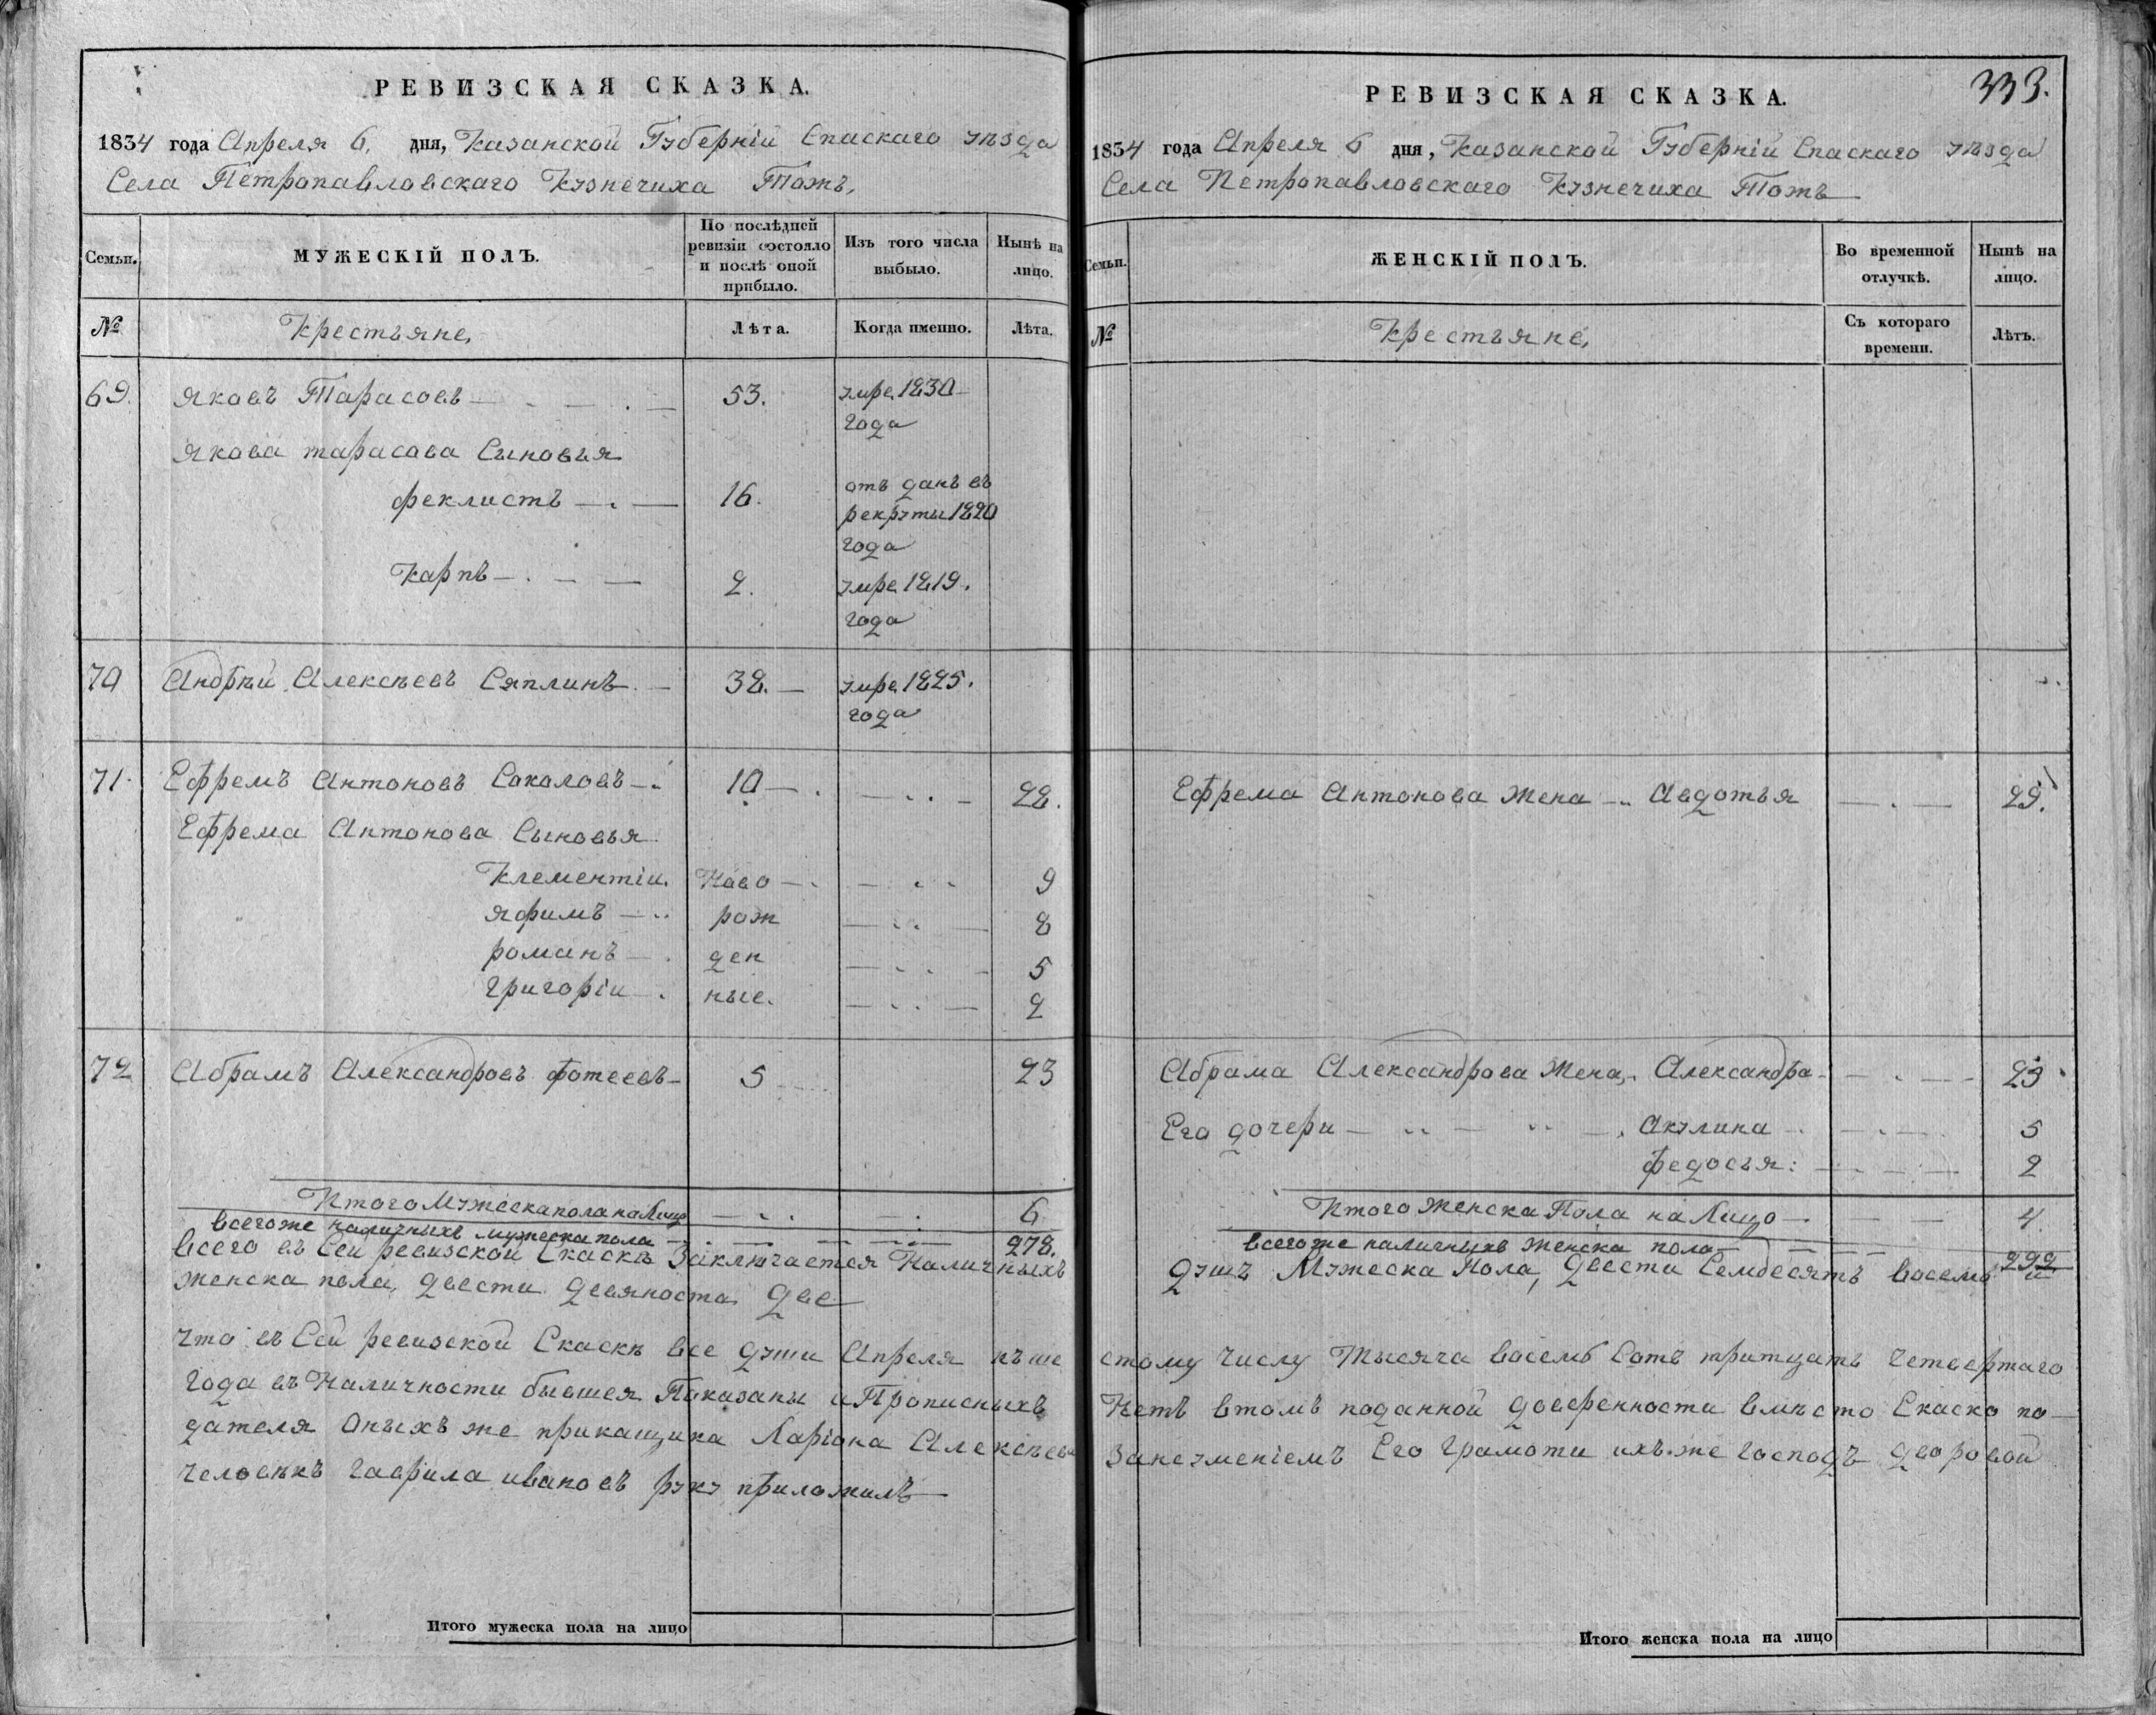 РЕВИЗСКАЯ СКАЗКА.
1834 года Апреля 6. дня, Казанской Губерніи Спаскаго уѣзда
Села Петропавловскаго Кузнечиха Тожъ,
Семьи.
МУЖЕСКІЙ ПОЛЪ.
По послѣдней
ревизіи состояло
и послѣ оной
прибыло.
Изъ того числа
выбыло.
Нынѣ на
лицо.
№
Крестьяне,
Лѣта.
Когда именно.
Лѣта.
69. Яковъ Тарасовъ 53. умре 1830
года
Якова тарасова Сыновья
феклистъ 16. отъ данъ въ
рекруты 1820
года
Карпъ 2. умре 1819.
года
70 Андрѣй Алексѣевъ Сяплинъ 38. умре 1825.
года
71. Ефремъ Антоновъ Саколовъ 10 28.
Ефрема Антонова Сыновья
Клементіи. Ново 9
яфимъ рож 8
романъ ден 5
григоріи ные. 2
72 Абрамъ Александровъ фотеевъ 5 23
Итого Мужеска пола на Лицо 6
всего же наличныхъ мужеска пола 278.
Всего въ Сеи ревизской Скаскѣ Заключается Наличныхъ
женска пола, двести девяноста две
что въ Сей ревизской Скаскѣ все души Апреля къ ше
года въ Наличности бывшея Показаны и Прописныхъ
дателя оныхъ же прикащика Ларіона Алексѣева
человѣкъ гаврила ивановъ руку приложилъ
Итого мужеска пола на лицо
333.
РЕВИЗСКАЯ СКАЗКА.
1834 года Апреля 6 дня, Казанской Губерніи Спаскаго уѣзда
Села Петропавловскаго Кузнечиха Тожъ
Семьи.
ЖЕНСКІЙ ПОЛЪ.
Во временной
отлучкѣ.
Нынѣ на
лицо.
№
Крестьяне,
Съ котораго
времени.
Лѣтъ.
Ефрема Антонова Жена Авдотья 29.
Абрама Александрова Жена, Александра 23
Его дочери Акулина 5
федосья: 2
Итого Женска Пола на Лицо 4.
всего же наличныхъ женска пола 292
душъ Мужеска Пола, двести Семдесятъ восемь и
стому числу Тысяча восемь Сотъ тритцать четвертаго
Нетъ втомъ поданной доверенности вмѣсто Скаско по
Занеуменіемъ Его грамоти ихъ же господъ дворовой
Итого женска пола на лицо